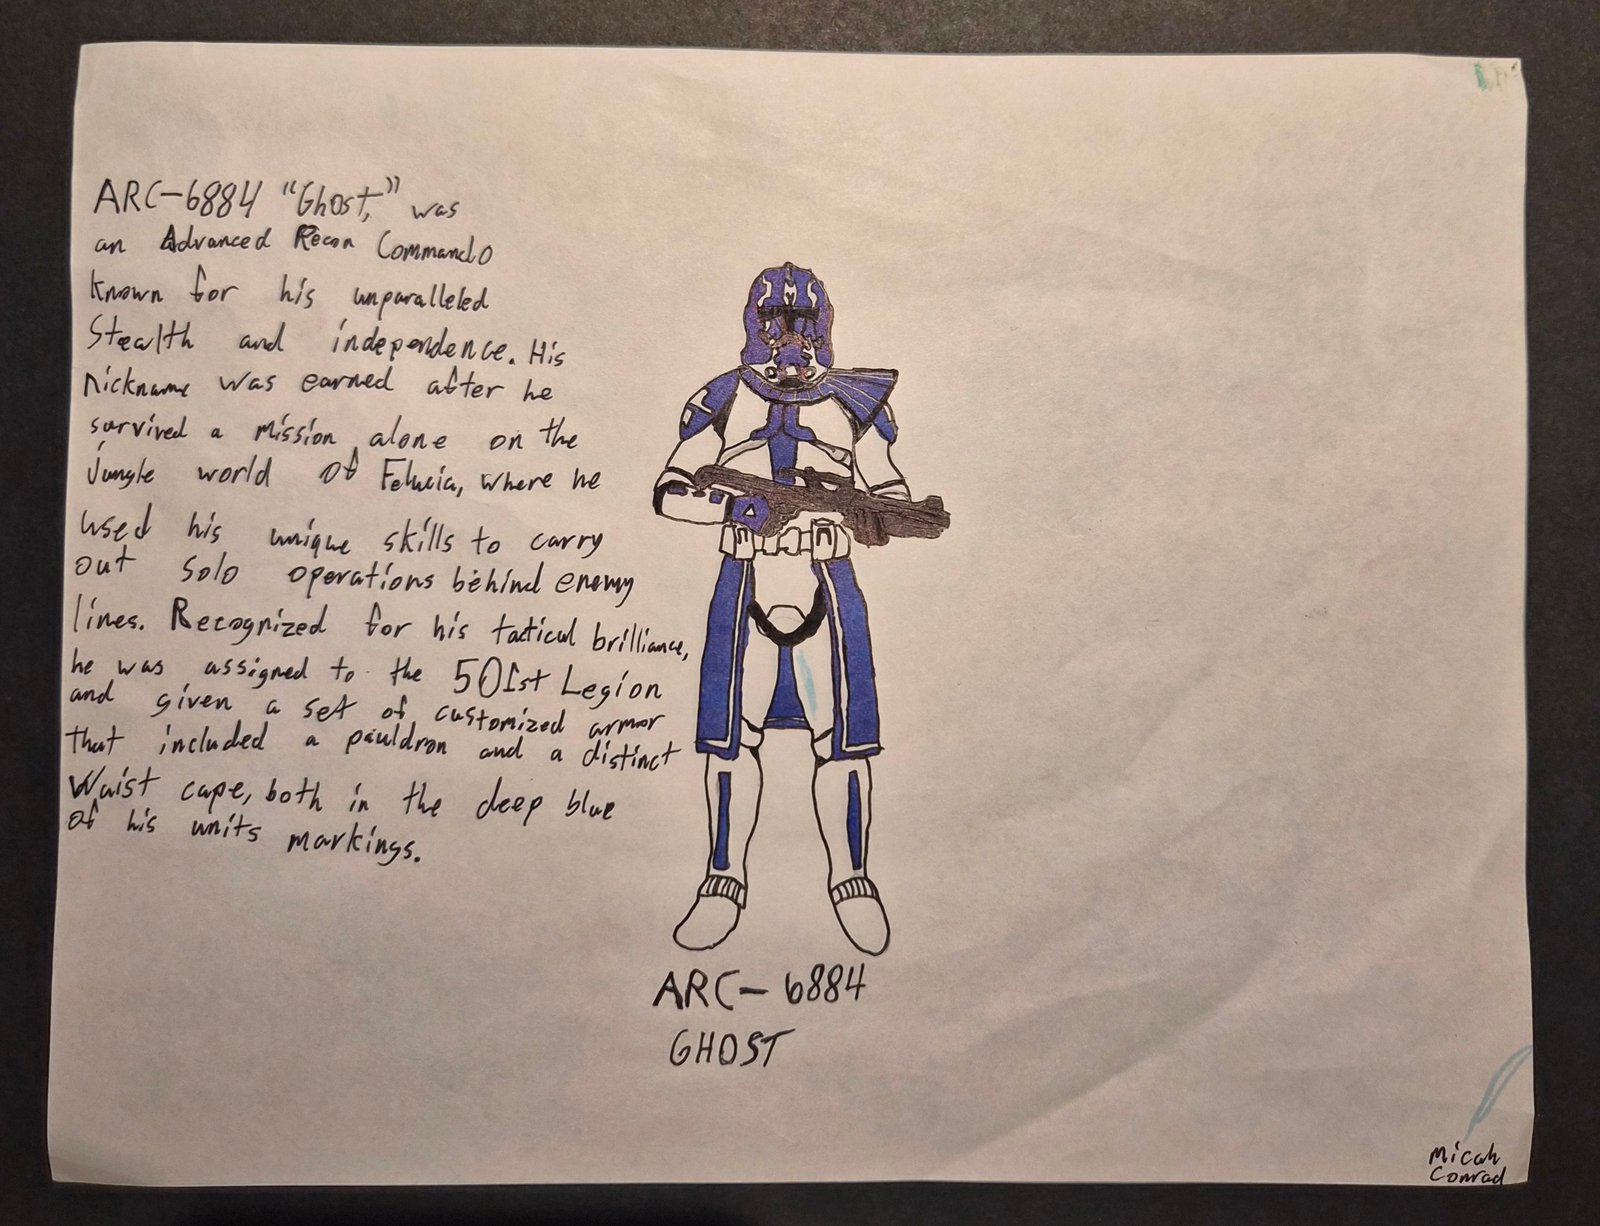 ARC-6884 "Ghost," was
an Advanced Recon Commando
known for his unparalleled
Stealth and independence. His
nickname was earned after he
survived a mission alone on the
jungle world of Felucia, where he
used his unique skills to carry
out solo operations behind enemy
lines. Recognized for his tactical brilliance,
he was assigned to the 501st Legion
and given a set of customized armor
that included a pauldron and a distinct
Waist cape, both in the deep blue
of his units markings.
ARC-6884
GHOST
Micah
Conrad